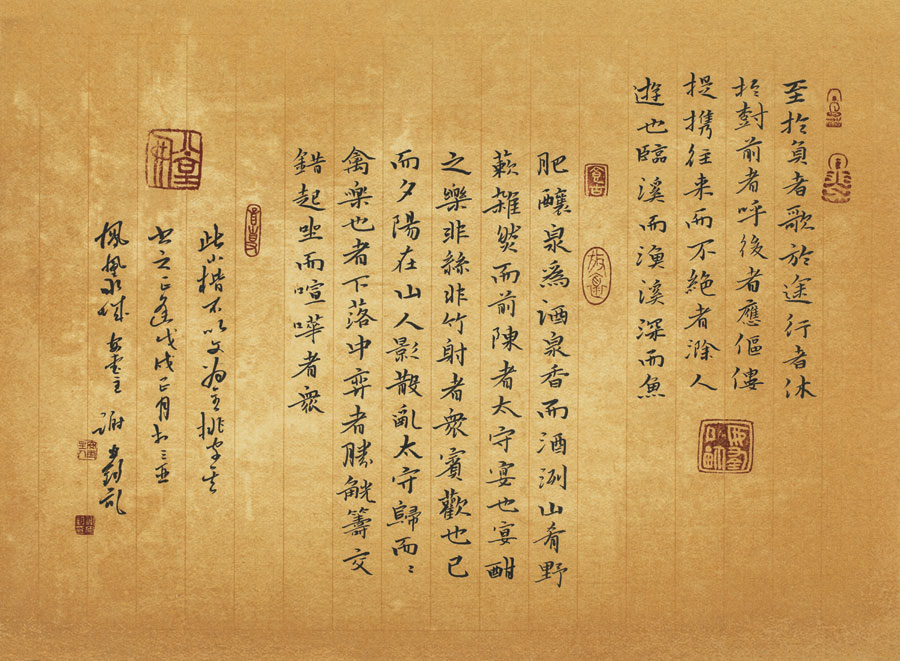 至於負者歌於途行者休
於對前者呼後者應傴僂
提攜往来而不絶者滁人
遊也臨溪而漁溪深而魚
肥釀泉為酒泉香而酒洌山肴野
蔌雜然而前陳者太守宴也宴酣
之樂非絲非竹射者衆賓歡也已
而夕陽在山人影散亂太守歸而〻
禽樂也者下落中弈者勝觥籌交
錯起坐而喧嘩者衆
此小楷不以文為主挑字
書之正逢戊戌正月廿三
楓 主 謝